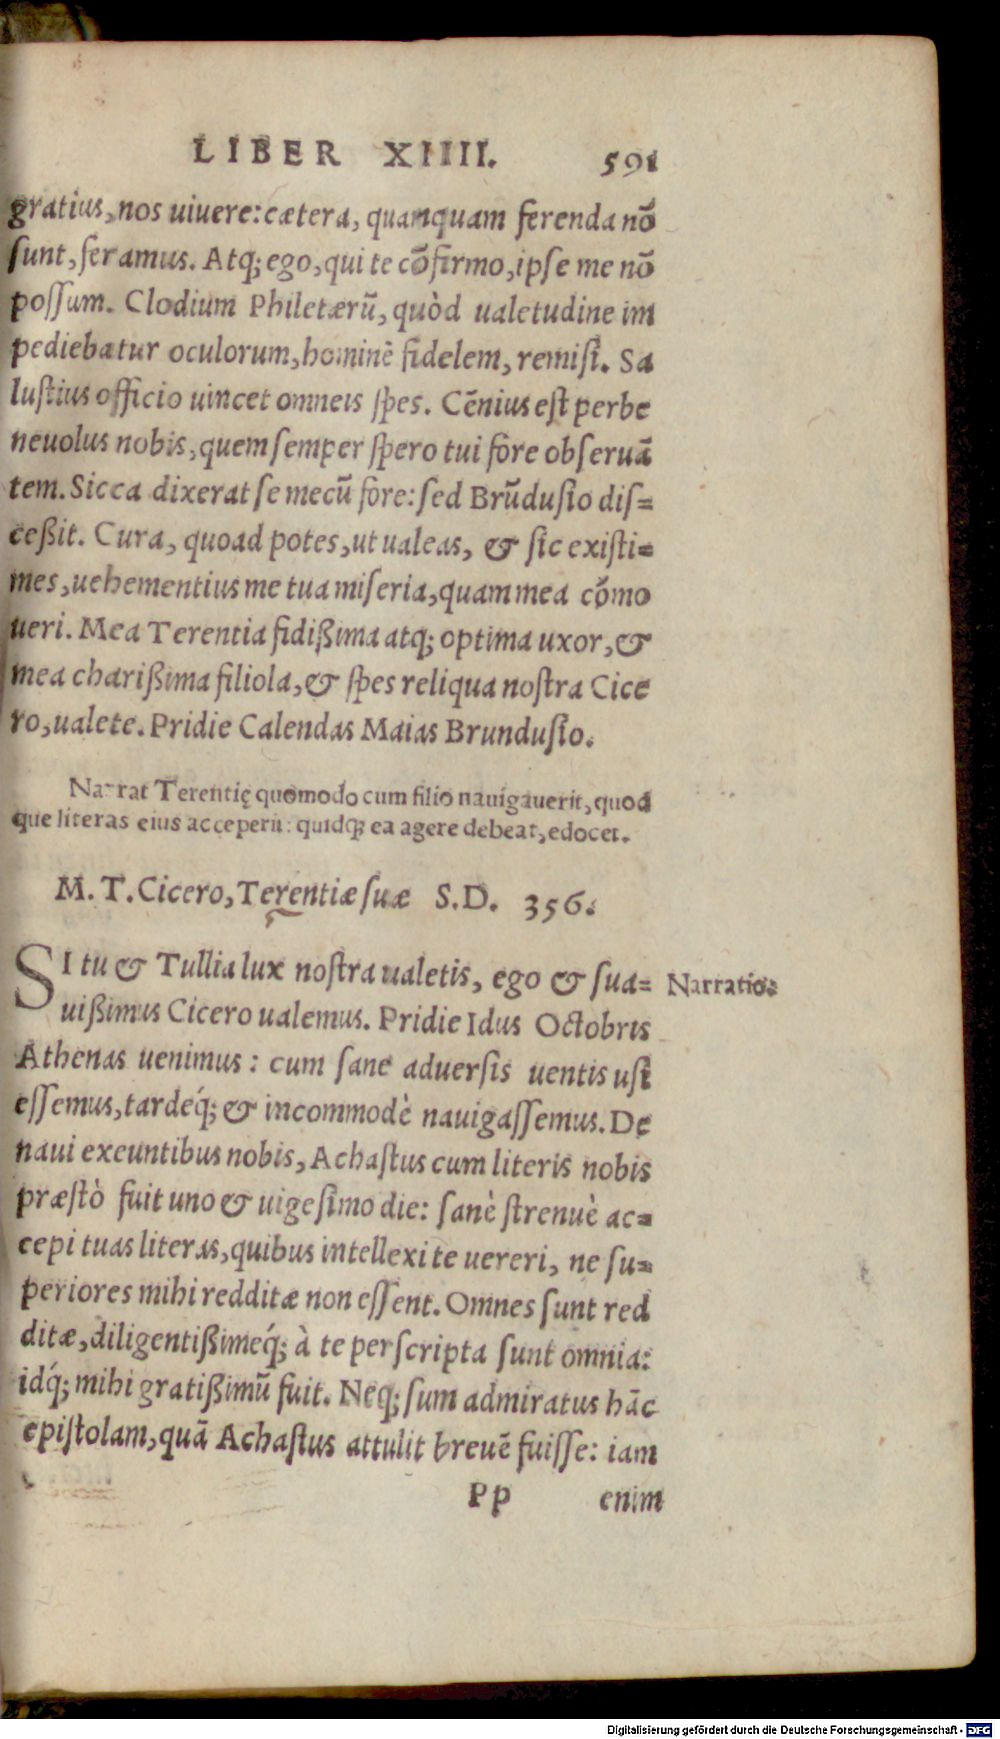 LIBER XIIII. 591
gratius, nos uiuere: cætera, quamquam ferenda nō
sunt, feramus. Atq; ego, qui te cōfirmo, ipse me nō
possum. Clodium Philetærū, quòd ualetudine im
pediebatur oculorum, hominē fidelem, remisi. Sa
lustius officio uincet omneis spes. Cēnius est perbe
neuolus nobis, quem semper spero tui fore obseruā
tem. Sicca dixerat se mecū fore: sed Brūdusio dis=
ceßit. Cura, quoad potes, ut ualeas, & sic existi=
mes, uehementius me tua miseria, quam mea cōmo
ueri. Mea Terentia fidißima atq; optima uxor, &
mea charißima filiola, & spes reliqua nostra Cice
ro, ualete. Pridie Calendas Maias Brundusio.
Narrat Terentię quomodo cum filio nauigauerit, quod
que literas eius acceperit: quidq; ea agere debeat, edocet.
M. T. Cicero, Terentiæ suæ S. D. 356.
SI tu & Tullia lux nostra ualetis, ego & sua= Narratio.
uißimus Cicero ualemus. Pridie Idus Octobris
Athenas uenimus: cum sane aduersis uentis usi
essemus, tardeq́; & incommodè nauigassemus. De
naui exeuntibus nobis, Achastus cum literis nobis
præstò fuit uno & uigesimo die: sanè strenuè ac=
cepi tuas literas, quibus intellexi te uereri, ne su=
periores mihi redditæ non essent. Omnes sunt red
ditæ, diligentißimeq́; à te perscripta sunt omnia:
idq́; mihi gratißimū fuit. Neq; sum admiratus hāc
epistolam, quā Achastus attulit breuē fuisse: iam
Pp enim
Digitalisierung gefördert durch die Deutsche Forschungsgemeinschaft - DFG